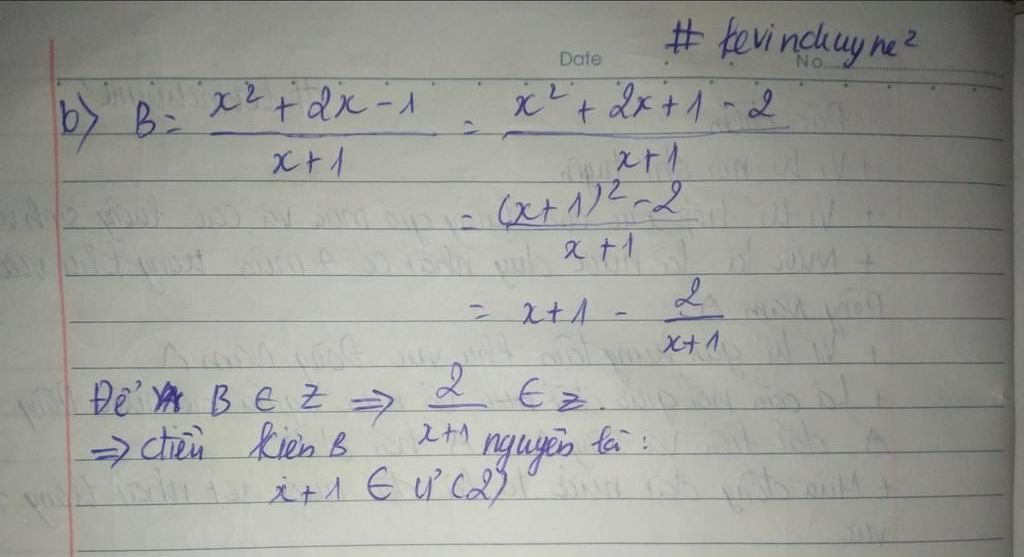 # kevinchuyne²
Date
No
b) B = \frac{x² + 2x - 1}{x + 1} = \frac{x² + 2x + 1 - 2}{x + 1}
= \frac{(x + 1)² - 2}{x + 1}
= x + 1 - \frac{2}{x + 1}
Để B ∈ Z ⇒ \frac{2}{x + 1} ∈ Z.
⇒ điều kiện B nguyên là :
x + 1 ∈ Ư(2)